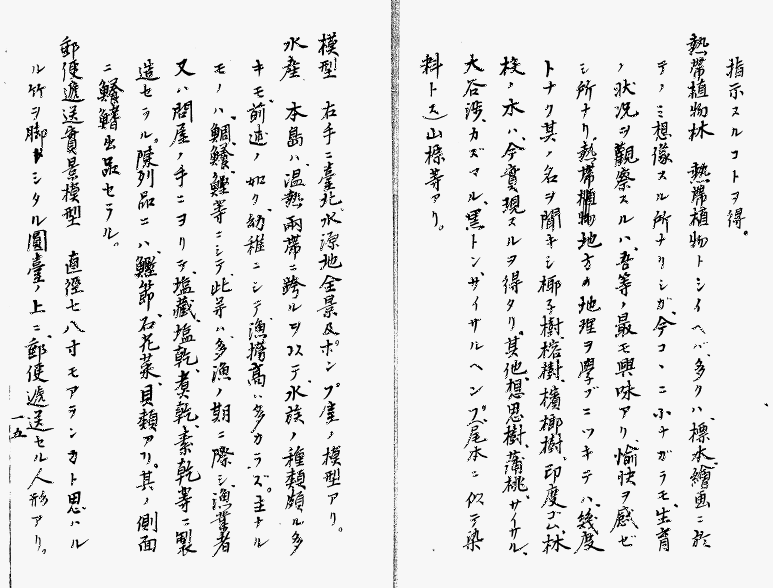 指示スルコトヲ得。
熱帶植物林　熱帶植物トシイヘバ、多クハ、標本繪画ニ於
テノミ想像スル所ナリシガ、今コヽニ小ナガラモ、生育
ノ状况ヲ觀察スルハ、吾等ノ最モ興味アリ、愉快ヲ感ゼ
シ所ナリ。熱帶植物地方ノ地理ヲ學ブニツキテハ、幾度
トナク其ノ名ヲ聞キシ椰子樹、榕樹、檳榔樹、印度ゴム、林
投ノ木ハ、今實現スルヲ得タリ。其他、想思樹、蒲桃、サイサル、
大谷渉、カズマル、黒トン、サイザルヘンプ、尾本ニ似テ染
料トス）山標等アリ。
模型　右手ニ臺北水源地全景及ポンプ室ノ模型アリ。
水産　本島ハ温熱兩帶ニ跨ルヲ以テ水族ノ種類頗ル多
キモ、前述ノ如ク幼稚ニシテ漁撈高ハ多カラズ。主ナル
モノハ鯛、鱶、鰹等ニシテ此等ハ多漁ノ期ニ際シ漁業者
又ハ問屋ノ手ニヨリテ塩藏、塩乾、煮乾、素乾等ニ製
造セラル。陳列品ニハ、鰹節、石花菜、貝類アリ。其ノ側面
ニ鱶鰭出品セラル。
郵便遞送實景模型　直徑七八寸モアランカト思ハル
ル竹ヲ脚トシタル圓臺ノ上ニ、郵便遞送セル人形アリ。
一五